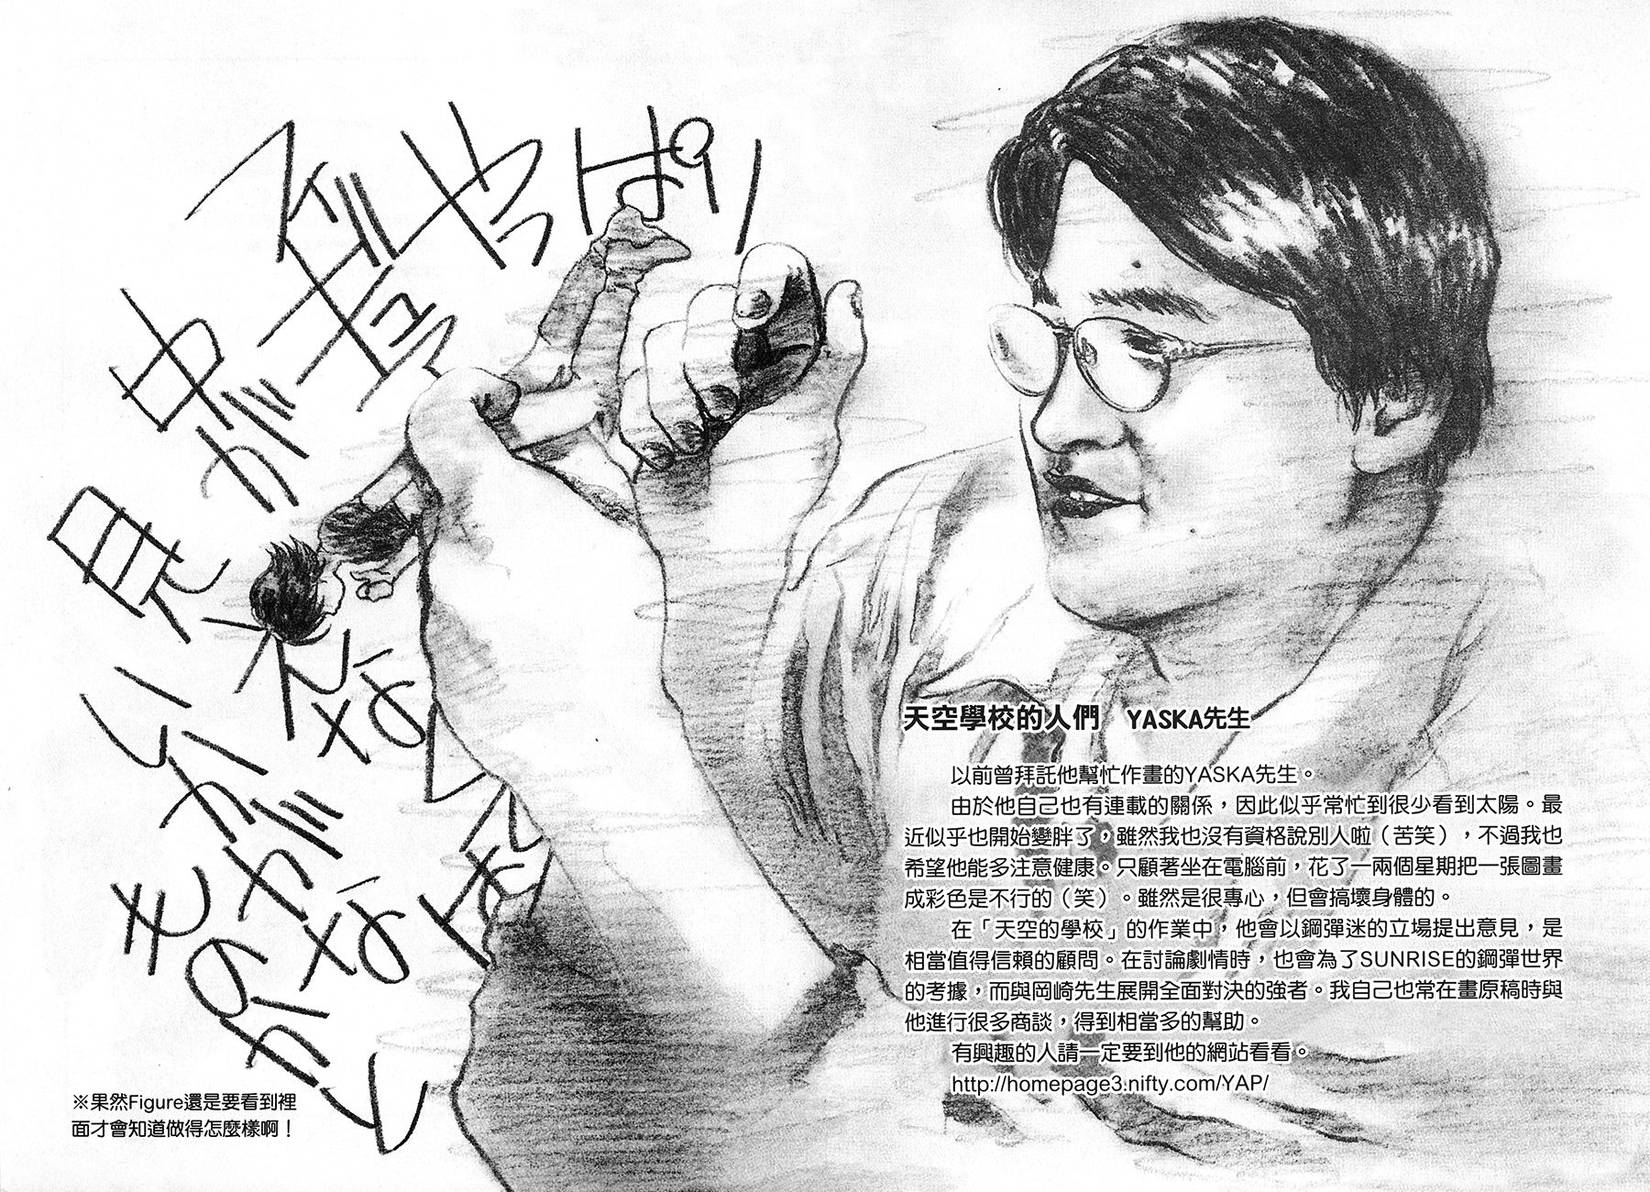 やっぱり
中が
見えな
天空學校的人們　YASKA先生
以前曾拜託他幫忙作畫的YASKA先生。
由於他自己也有連載的關係，因此似乎常忙到很少看到太陽。最
近似乎也開始變胖了，雖然我也沒有資格說別人啦（苦笑），不過我也
希望他能多注意健康。只顧著坐在電腦前，花了一兩個星期把一張圖畫
成彩色是不行的（笑）。雖然是很專心，但會搞壞身體的。
在「天空的學校」的作業中，他會以鋼彈迷的立場提出意見，是
相當值得信賴的顧問。在討論劇情時，也會為了SUNRISE的鋼彈世界
的考據，而與岡崎先生展開全面對決的強者。我自己也常在畫原稿時與
他進行很多商談，得到相當多的幫助。
有興趣的人請一定要到他的網站看看。
http://homepage3.nifty.com/YAP/
※果然Figure還是要看到裡
面才會知道做得怎麼樣啊！